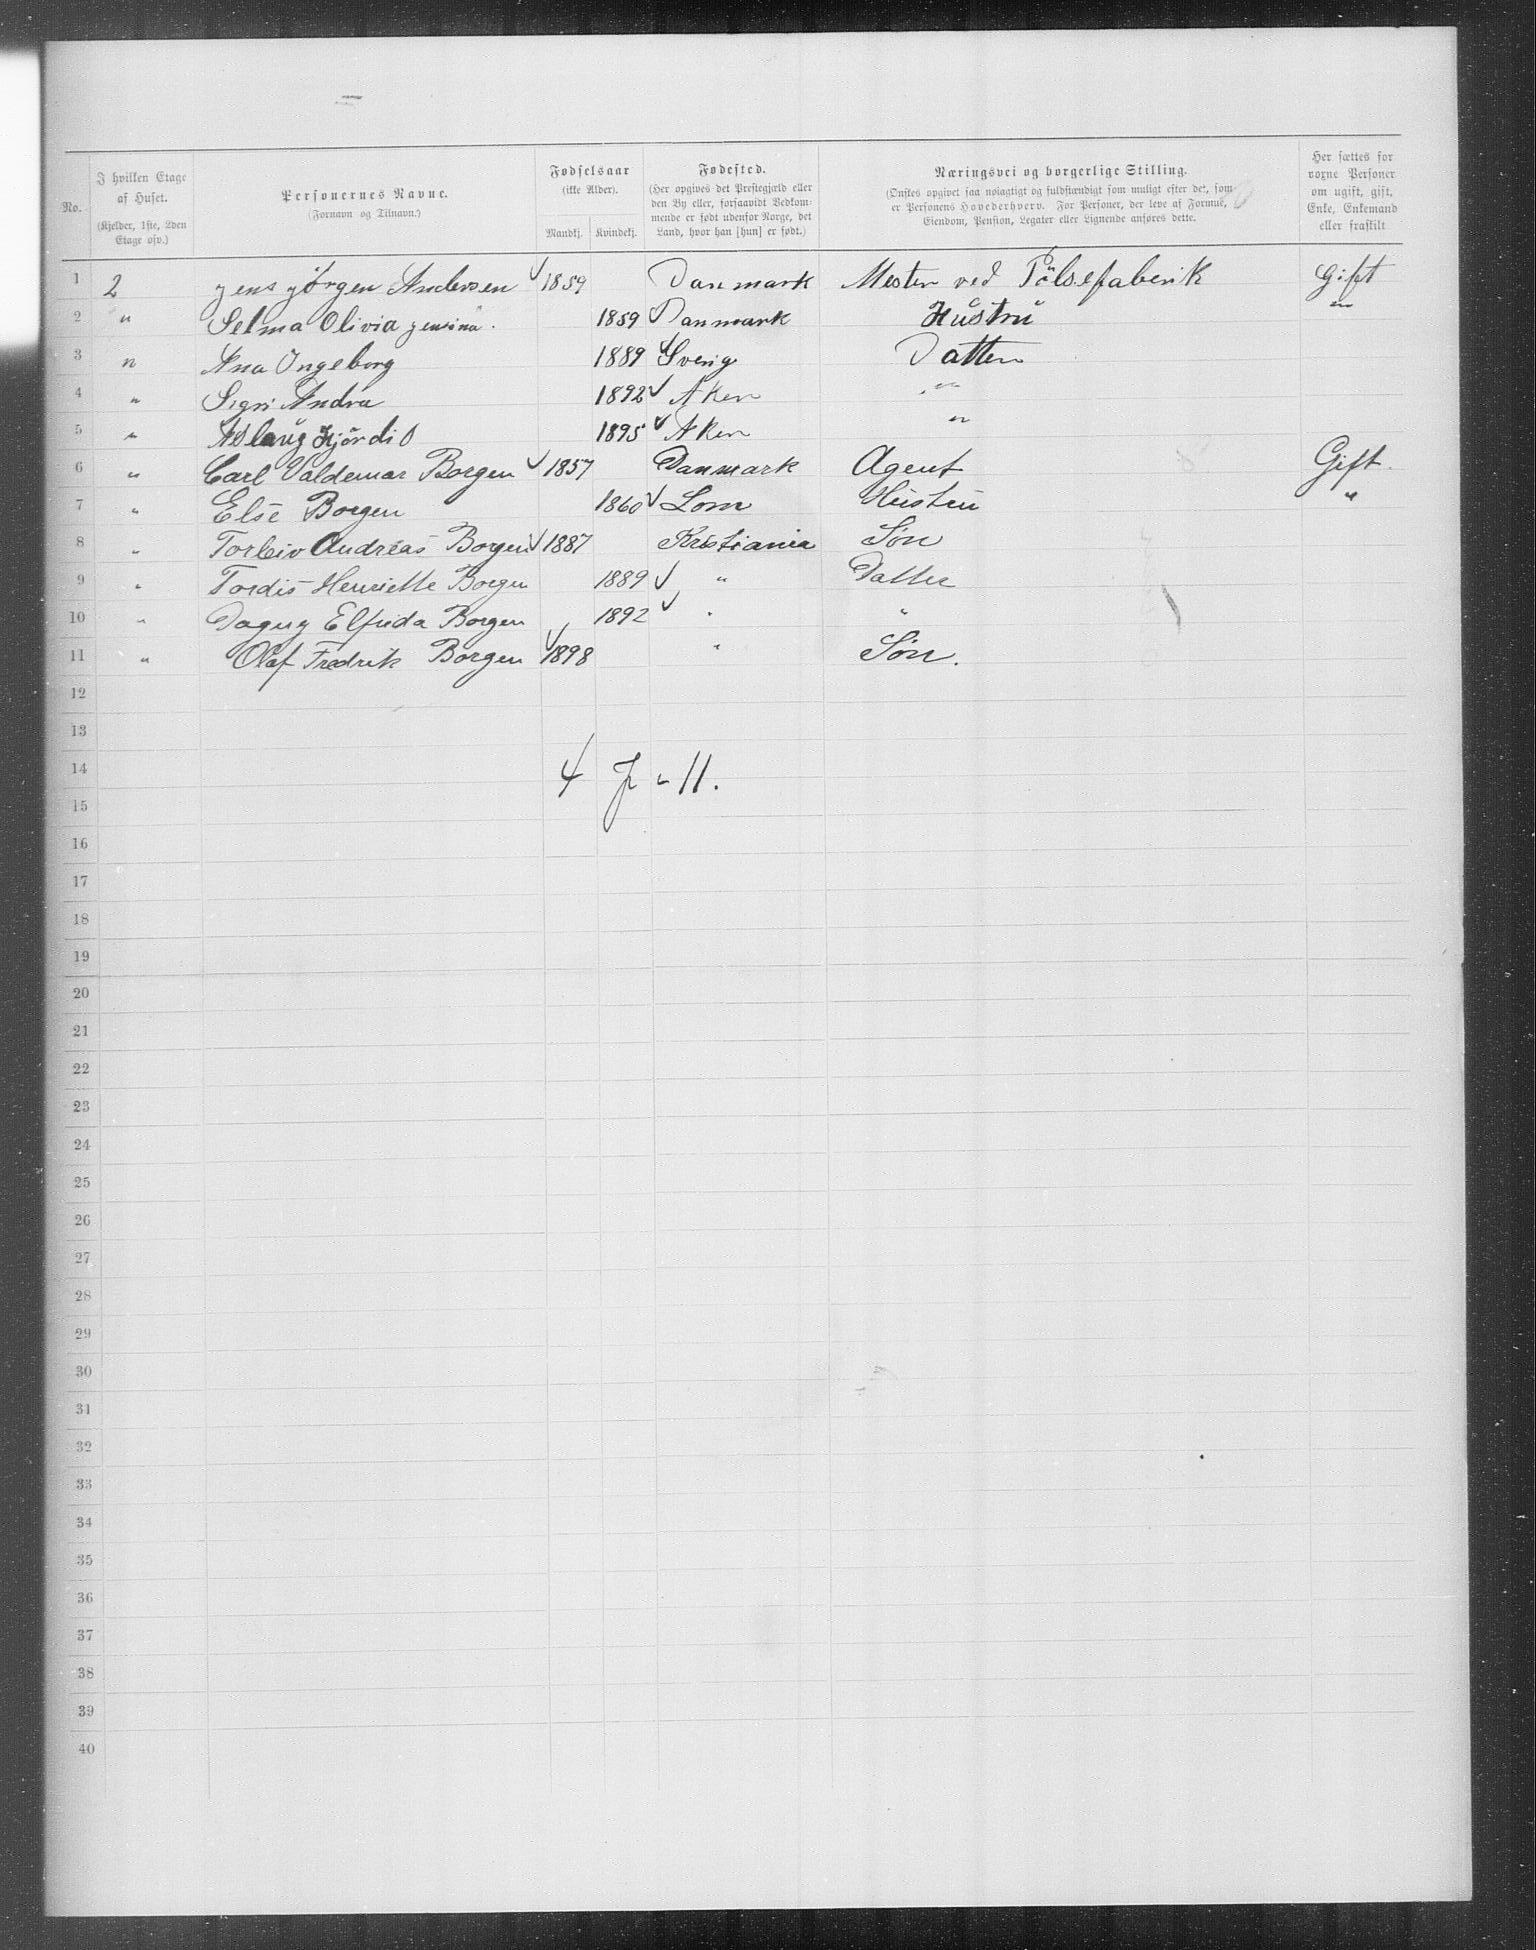 No. | I hvilken Etage af Huset. (Kjelder, 1ste, 2den Etage osv.) | Personernes Navne. (Fornavn og Tilnavn.) | Fødselsaar (ikke Alder). Mandkj. | Kvindekj. | Fødested. (Her opgives det Prestegjæld eller den By eller, forsaavidt Vedkommende er født udenfor Norge, det Land, hvor han [hun] er født.) | Næringsvei og borgerlige Stilling. (Ønskes opgivet saa nøiagtigt og fuldstændigt som muligt efter det, som er Personens Hovederhverv. For Personer, der leve af Formue, Eiendom, Pension, Legater eller Lignende anføres dette. | Her sættes for voxne Personer om ugift, gift, Enke, Enkemand eller fraskilt
1 2 Jens Jørgen Andersen √ 1859 Danmark Mester ved Pölsefaberik Gift
2 " Selma Olivia Jensina. 1859 √ Danmark Hustru "
3 " Ana Ingeborg 1889 √ Sverig Datter
4 " Sigri Andra 1892 √ Aker "
5 " Aslaug Hjördis 1895 √ Aker "
6 " Carl Valdemar Borgen √ 1857 Danmark Agent Gift.
7 " Else Borgen 1860 √ Lom Hustru "
8 " Torleiv Andreas Borgen √ 1887 Kristiania Søn
9 " Tordis Henriette Borgen 1889 √ " Datter
10 " Dagny Elfrida Borgen 1892 √ " "
11 " Olaf Fredrik Borgen √ 1898 " Søn.
12
13
14 4 7 - 11.
15
16
17
18
19
20
21
22
23
24
25
26
27
28
29
30
31
32
33
34
35
36
37
38
39
40